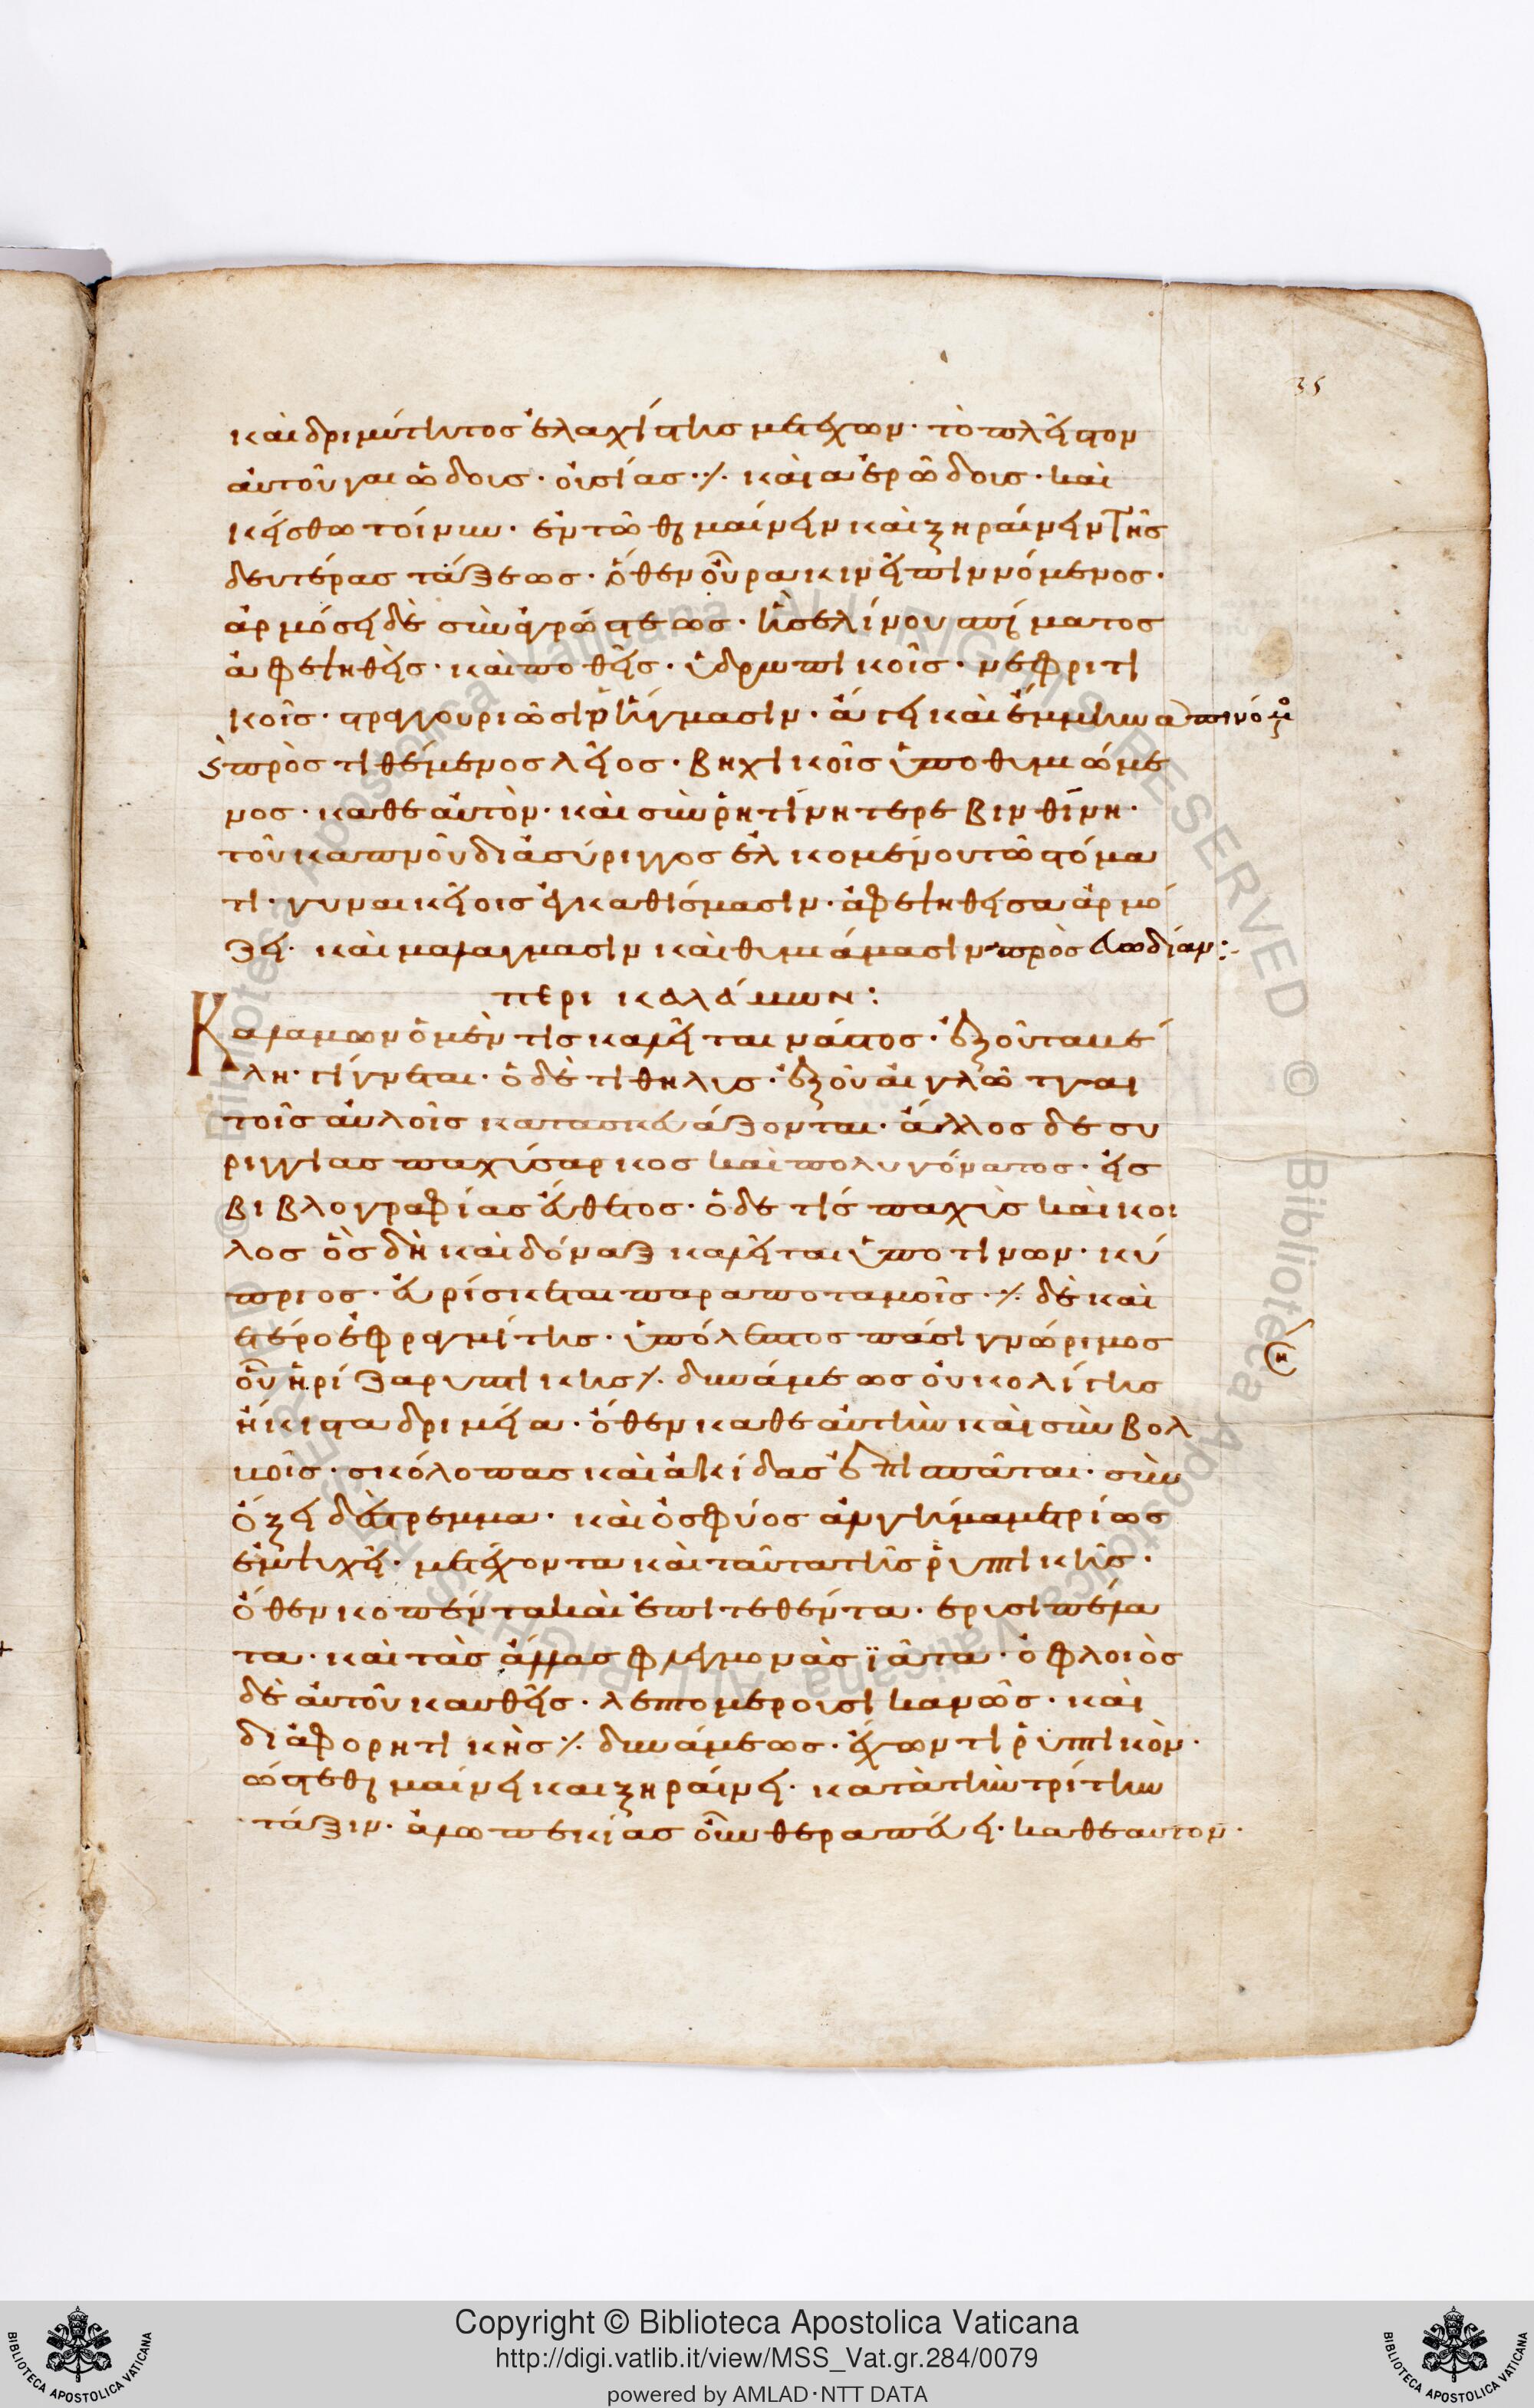 35
καὶ δριμύτητος ἐλαχίστης μετέχων· τὸ πλεῖστον
αὐτοῦ γαιώδους· οὐσίας ⁒ καὶ ἀερώδους· καὶ
κείσθω τοίνυν· ἐν τῶ θερμαίνειν καὶ ξηραίνειν τῆς
δευτέρας τάξεως· ὅθεν οὖρα κινεῖ πιννόμενος·
ἁρμόσει δὲ σὺν ἀγρώστεως· ἢ σελίνου σπέρματος
ἀφεψηθεὶς· καὶ ποθεὶς· ὑδρωπικοῖς· νεφριτι
κοῖς· στραγγουριῶσι ῥήγμασιν· ἄγει καὶ ἔμμηνα πινόμ
ϛ προστιθέμενος λεῖος· βηχικοῖς ὑποθυμιώμε
νος· καθ εαυτὸν· καὶ σὺν ῥητίνη τερεβινθίνη·
τοῦ καπνοῦ διὰ σύριγγος ἑλκομένου τῶ στόμα
τι· γυναικείοις ἐγκαθίσμασιν· ἀφεψηθείσα ἁρμό
ζει· καὶ μαλαγμασιν καὶ θυμιάμασιν πρὸς εὐωδίαν:
περι καλάμων:
Καλαμων ὁ μέν τις καλεῖται νάστος· ἐξ οὗ τα μέ
λη· γίγνεται· ὁ δέ τι θηλυς· ἐξ οὗ αἱ γλῶτται
τοῖς αὐλοῖς κατασκευάζονται· ἄλλος δε συ
ριγγίας παχύσαρκος καὶ πολυγόνατος· εἰς
βιβλογραφίας εὔθετος· ὁ δε τίς παχὺς καὶ κοι
λος ὃς δὴ καὶ δόναξ καλεῖται ὑπο τινων· κύ
πριος· εὑρίσκεται παρα ποταμοῖς ⁒ δὲ καὶ
ετέρος φραγμίτης· ὑπόλευκος πάσι γνώριμος
οὗ ἡ ρίζα ρυπτικης ⁒ δυνάμεως οὐκ ολίγης
ἥκιστα δριμεῖα· ὅθεν καθ εαυτὴν καὶ σὺν βολ
μοῖς· σκόλοπας καὶ ακίδας ἐπισπᾶται· σὺν
ὄξει δὲ στρέμμα· καὶ ὀσφύος ἀλγήματα μετρίως
ἐμψυχεῖ· μετέχοντα καὶ ταῦτα τῆς ῥυπτικῆς·
ὅθεν κοπέντα καὶ ἐπιτεθέντα· ερυσιπέλα
τα· καὶ τὰς ἄλλας φλεγμονὰς ϊᾶται· ὁ φλοιὸς
δὲ αὐτοῦ καυθεὶς· λεπτομεροῦς ἱκανῶς· καὶ
διαφορητικὴς ⁒ δυνάμεως· ἔχων τι ῥυπτικὸν·
ὥστε θερμαίνει και ξηραίνει· κατὰ τὴν τρίτην
τάξιν· ἀλωπεκίας οὖν θεραπεύει· καθ εαυτον·
Copyright © Biblioteca Apostolica Vaticana
http://digi.vatlib.it/view/MSS_Vat.gr.284/0079
powered by AMLAD·NTT DATA
BIBLIOTECA APOSTOLICA VATICANA
BIBLIOTECA APOSTOLICA VATICANA